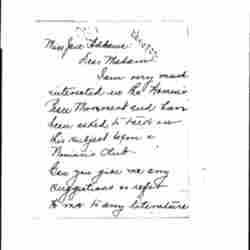 Miss Jane Addams
Dear Madam
I am very much
interested in the Woman's
Peace Movement and have
been asked to
this subject before a
Woman's Club.
Can you give me any
suggestions or refer
to me to any literature